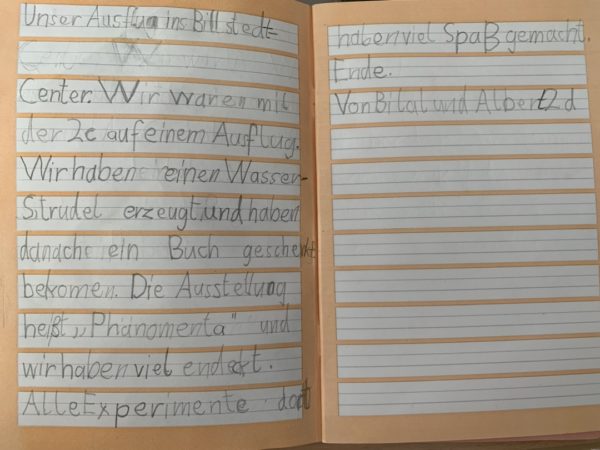 Unser Ausflug ins Billstedt-
Center. Wir waren mit
der 2c auf einem Ausflug.
Wir haben einen Wasser-
Strudel erzeugt, und haben
danache ein Buch geschenkt
bekomen. Die Ausstellung
heißt „Phänomenta" und
wir haben viel endeckt.
Alle Experimente dort
haben viel Spaß gemacht.
Ende.
Von Bilal und Albert 2d